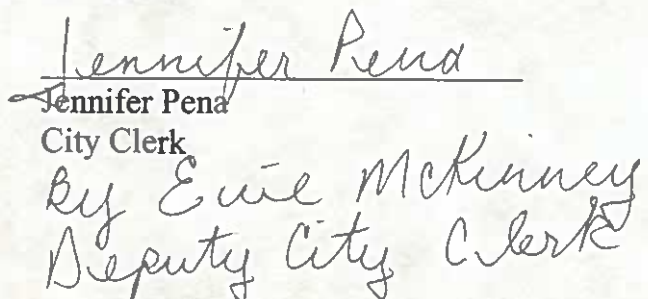 Jennifer Pena
Jennifer Pena
City Clerk
By McKinney
Deputy City Clerk